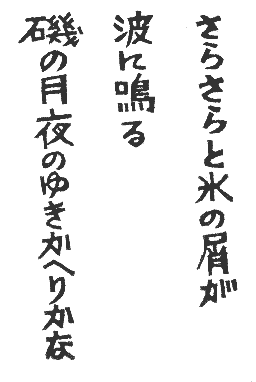 さらさらと氷の屑が
波に鳴る
磯の月夜のゆきかへりかな